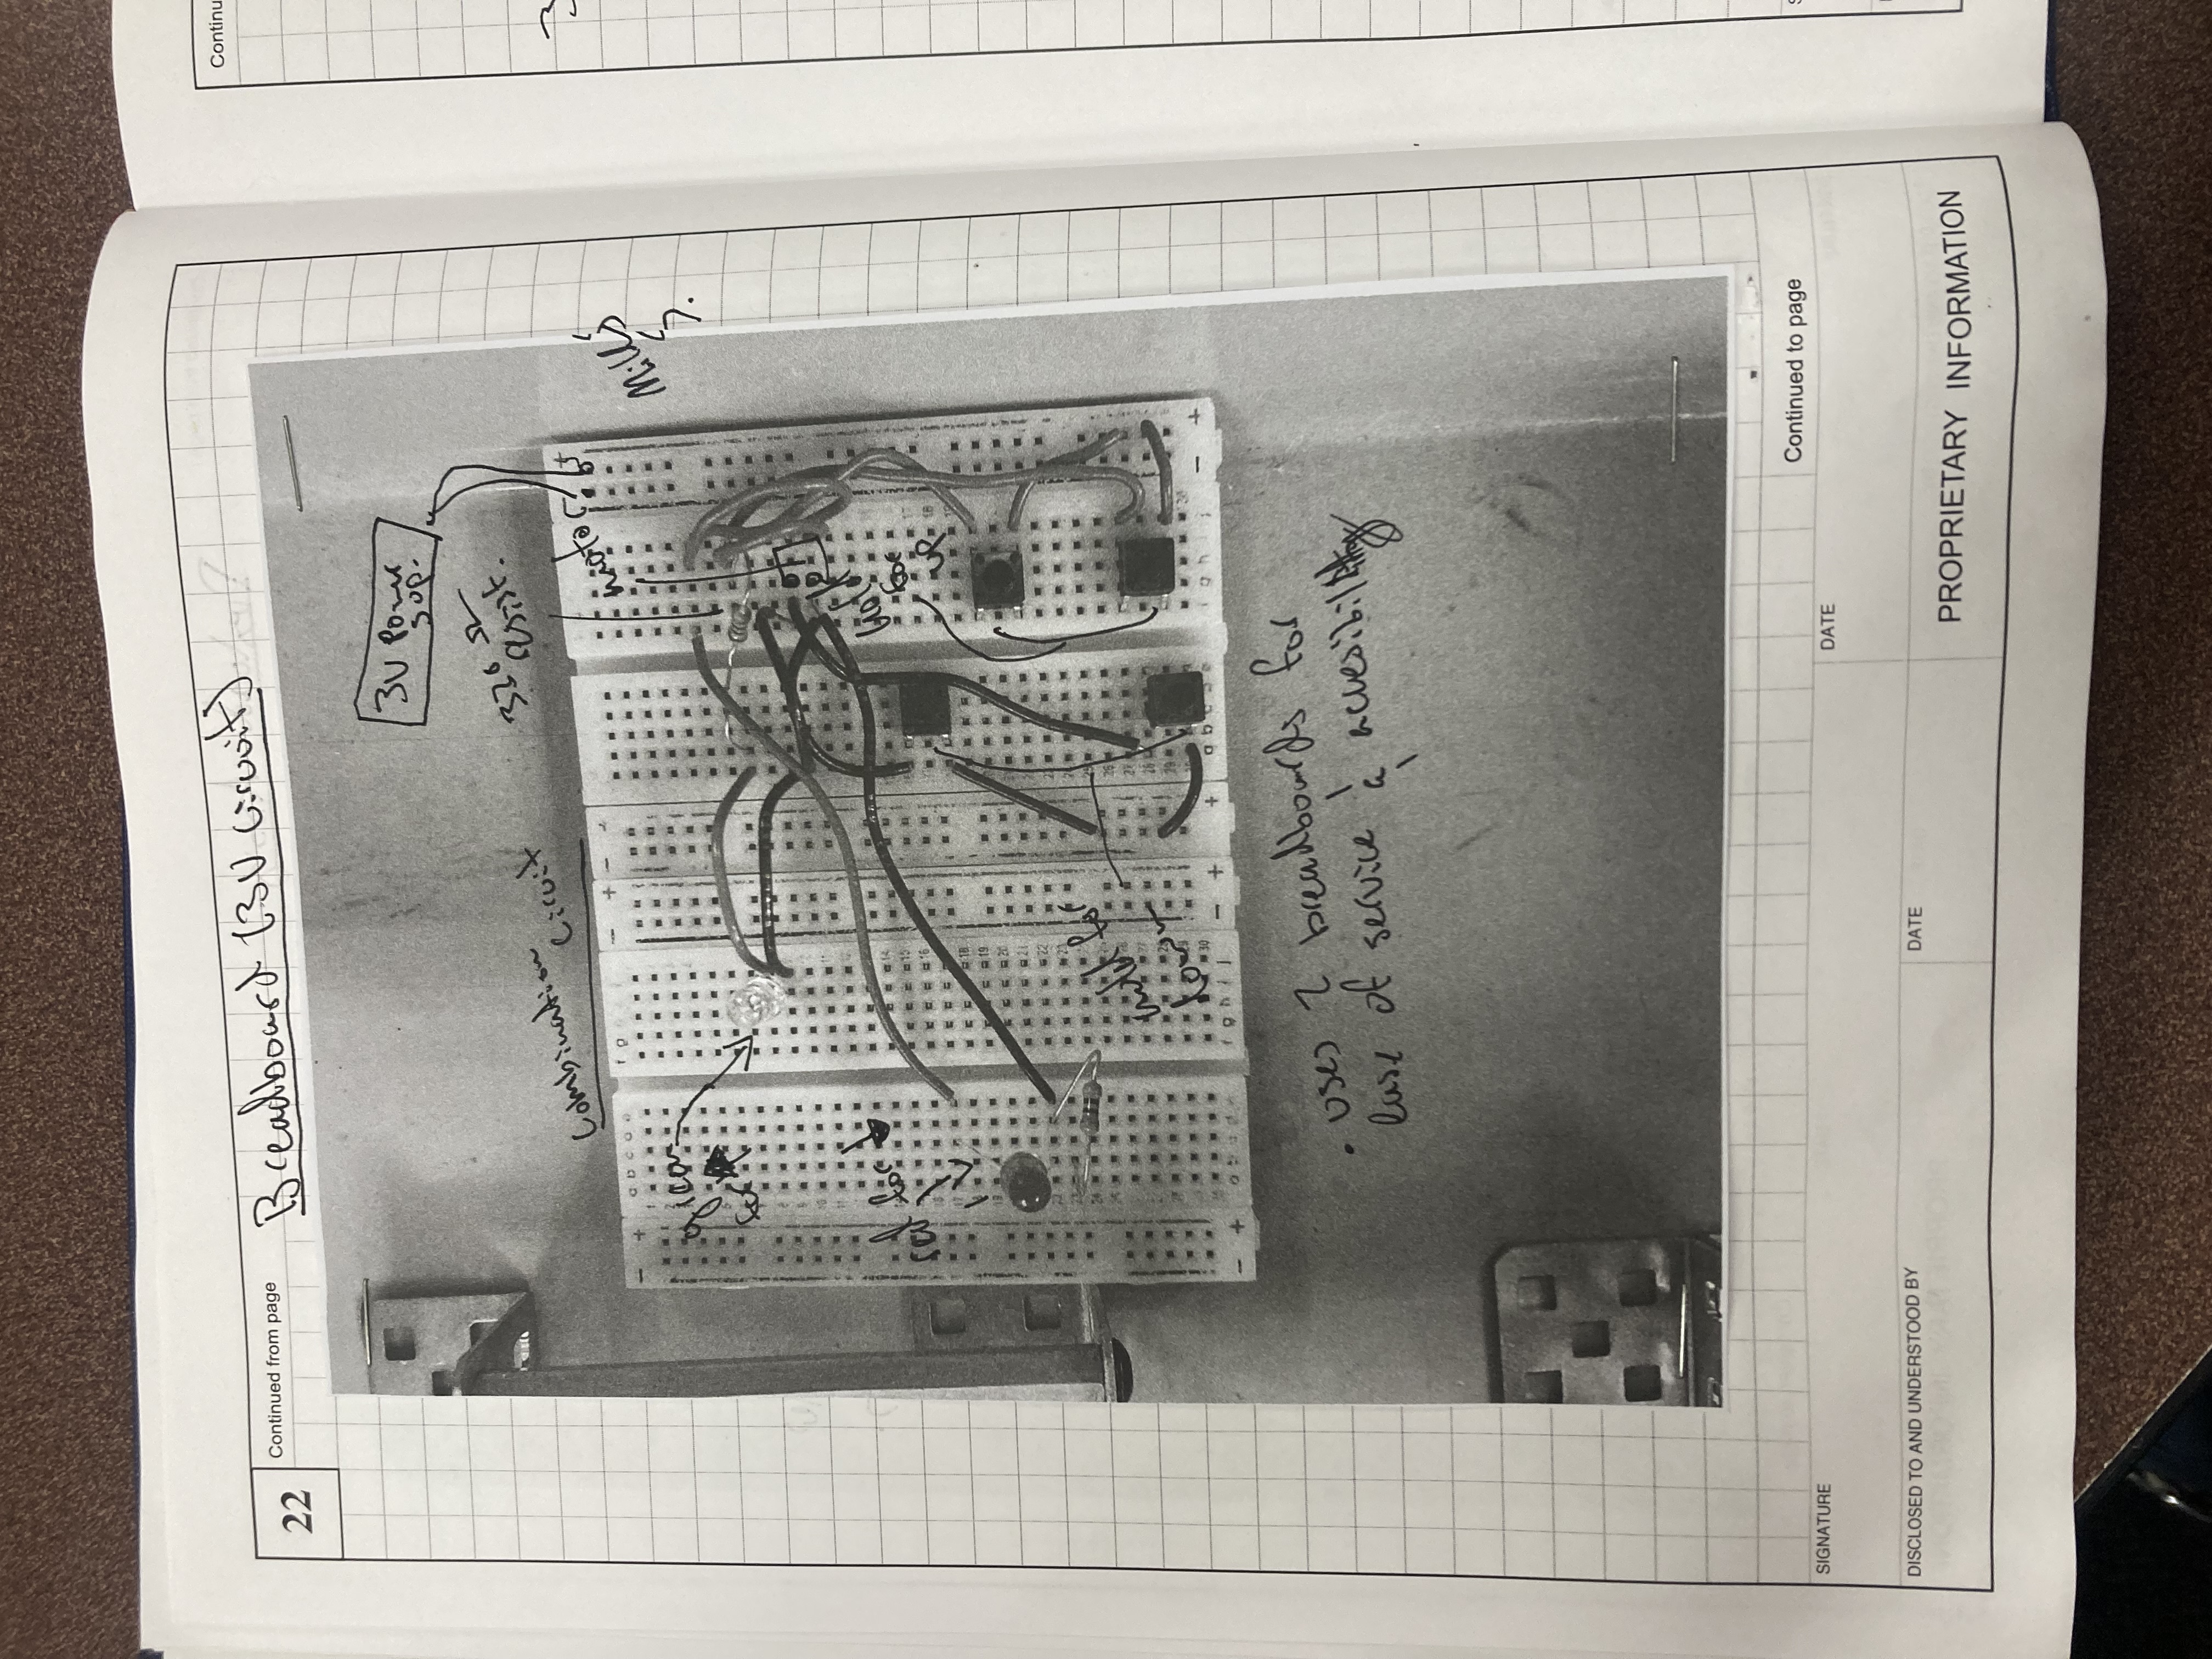 22
Continued from page
Breadboard (3V Circuit)
3V Power
sup.
330 Ω
resist.
Combination
Circuit
motor
green
for
red for
hold
for
up
hold for
down
. uses 2 breadboards for
ease of service & accesibility
Continued to page
SIGNATURE
DATE
DISCLOSED TO AND UNDERSTOOD BY
DATE
PROPRIETARY INFORMATION
Continu